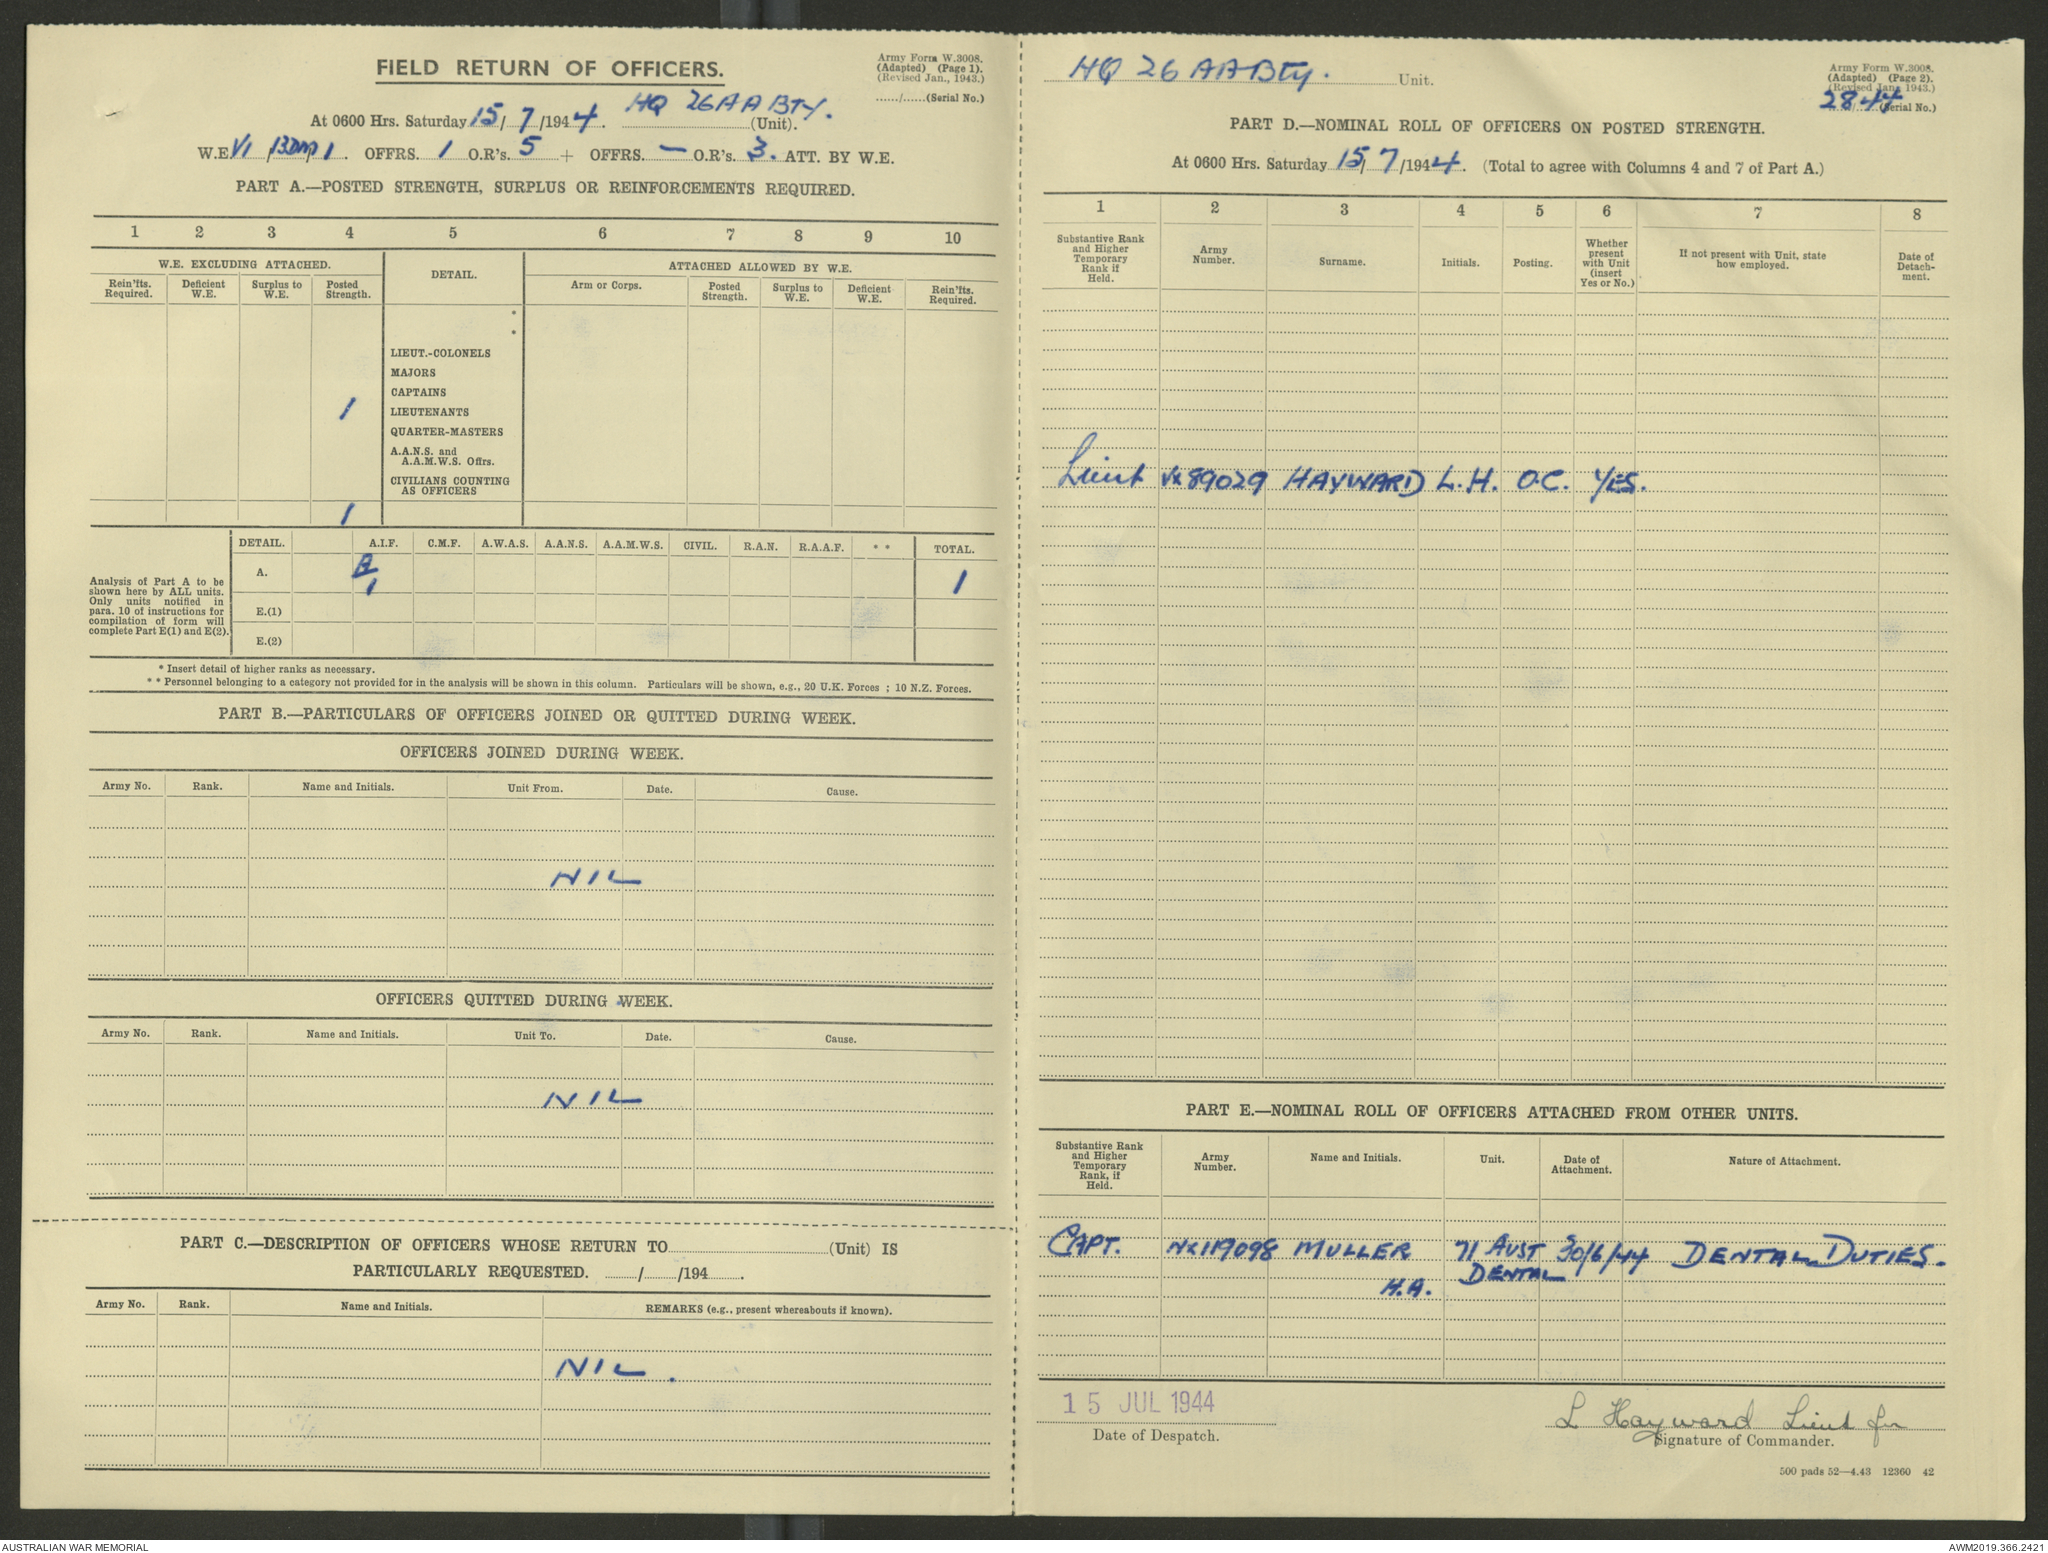 FIELD RETURN OF OFFICERS.
Army Form W.3008.
(Adapted) (Page 1).
(Revised Jan., 1943.)
....../......(Serial No.)
At 0600 Hrs. Saturday 15/7/1944. HQ 26 A A BTY. (Unit).
W.E. VI /13DM/1. OFFRS. 1 O.R's. 5 + OFFRS. — O.R's. 3. ATT. BY W.E.
PART A.—POSTED STRENGTH, SURPLUS OR REINFORCEMENTS REQUIRED.
1 2 3 4 5 6 7 8 9 10
W.E. EXCLUDING ATTACHED. DETAIL. ATTACHED ALLOWED BY W.E.
Rein'fts. Required. Deficient W.E. Surplus to W.E. Posted Strength. Arm or Corps. Posted Strength. Surplus to W.E. Deficient W.E. Rein'fts. Required.
*
*
LIEUT.-COLONELS
MAJORS
CAPTAINS
1 LIEUTENANTS
QUARTER-MASTERS
A.A.N.S. and
A.A.M.W.S. Offrs.
CIVILIANS COUNTING
AS OFFICERS
1
DETAIL. A.I.F. C.M.F. A.W.A.S. A.A.N.S. A.A.M.W.S. CIVIL. R.A.N. R.A.A.F. * * TOTAL.
Analysis of Part A to be
shown here by ALL units.
Only units notified in
para. 10 of instructions for
compilation of form will
complete Part E(1) and E(2).
A. B/1 1
E.(1)
E.(2)
* Insert detail of higher ranks as necessary.
* * Personnel belonging to a category not provided for in the analysis will be shown in this column. Particulars will be shown, e.g., 20 U.K. Forces ; 10 N.Z. Forces.
PART B.—PARTICULARS OF OFFICERS JOINED OR QUITTED DURING WEEK.
OFFICERS JOINED DURING WEEK.
Army No. Rank. Name and Initials. Unit From. Date. Cause.
NIL
OFFICERS QUITTED DURING WEEK.
Army No. Rank. Name and Initials. Unit To. Date. Cause.
NIL
PART C.—DESCRIPTION OF OFFICERS WHOSE RETURN TO....................(Unit) IS
PARTICULARLY REQUESTED. ......../......../194........
Army No. Rank. Name and Initials. REMARKS (e.g., present whereabouts if known).
NIL.
HQ 26 AA Bty. Unit.
Army Form W.3008.
(Adapted) (Page 2).
(Revised Jan., 1943.)
28 44 (Serial No.)
PART D.—NOMINAL ROLL OF OFFICERS ON POSTED STRENGTH.
At 0600 Hrs. Saturday 15/7/1944. (Total to agree with Columns 4 and 7 of Part A.)
1 2 3 4 5 6 7 8
Substantive Rank and Higher Temporary Rank if Held. Army Number. Surname. Initials. Posting. Whether present with Unit (insert Yes or No.) If not present with Unit, state how employed. Date of Detach-ment.
Lieut VX89029 HAYWARD L.H. O.C. YES.
PART E.—NOMINAL ROLL OF OFFICERS ATTACHED FROM OTHER UNITS.
Substantive Rank and Higher Temporary Rank, if Held. Army Number. Name and Initials. Unit. Date of Attachment. Nature of Attachment.
CAPT. NX119098 MULLER 71 AUST 30/6/44 DENTAL DUTIES.
H.A. DENTAL
15 JUL 1944
Date of Despatch.
L Hayward Lieut for
Signature of Commander.
500 pads 52—4.43 12360 42
AUSTRALIAN WAR MEMORIAL
AWM2019.366.2421